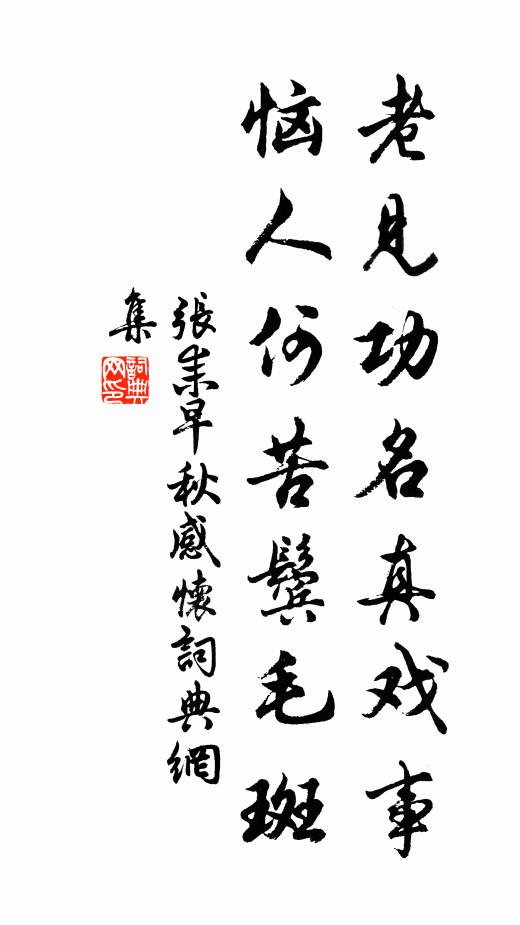 老见功名真戏事
恼人何苦鬓毛斑
張耒早秋感懷詞典網
集
詞典
网印